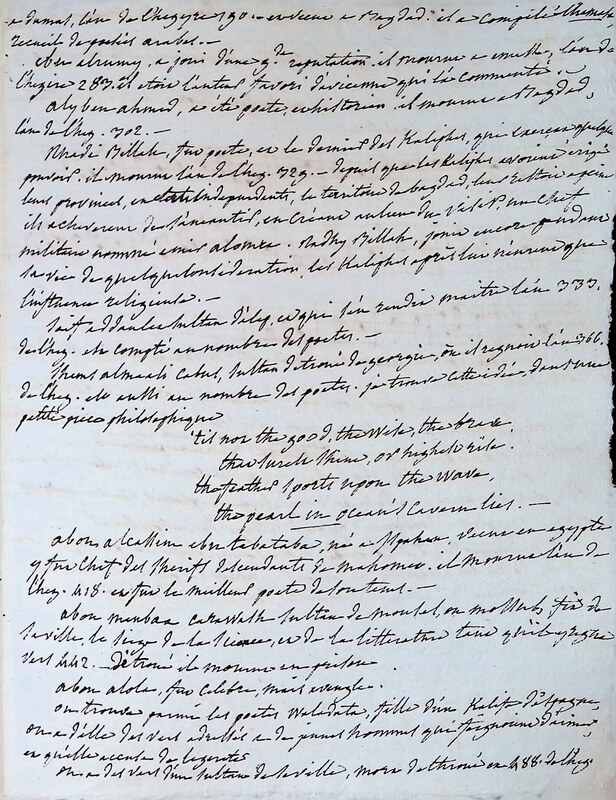 a damas, l'an de l'hegyre 190. – en vecu a Bagdad. il a compilé
recueil de poesies arabes. –
eben alrumy, a joui d'une gde reputation. il mourut a l'an de
l'hegire 283. il etoit l'auteur favori d'avicenne qui l'a commenté. –
aly ben ahmed, a été poete, et historien. il mourut a Bagdad,
l'an de l'heg. 302. –
Rhadi Billah, fut poete, et le dernier des Kaliphes, qui exerca quelque
pouvoir. il mourut l'an de l'heg. 329 – depuis que les Kaliphes avoient erigé
leurs provinces, en etats independants, le territoire de bagdad, leur
ils acheverent de s'aneantir, en créant un chef
militaire nommé emir alomra. Radhy Billah, jouit encore pendant
sa vie de quelque consideration, les Kaliphes après lui n'eurent que
l'influence religieuse. –
saif addaula sultan d'alep, et qui s'en rendit maitre l'an 333.
de l'heg. est compté au nombre des poetes. –
shems almaali cabus, sultan detroné de georgie, où il regnoit l'an 366,
de l'heg. est aussi au nombre des poetes. je trouve cette idée dans une
petite piece philosophique
'tis not the good, the wise, the brave,
that surest shine, or highest rise
the feather sports upon the wave,
the pearl in ocean's cavern lies. –
abou alcassim eben tabataba, né a ispahan, vecut en egypte
y fut chef des sheriffs descendants de mahomet. il mourut l'an de
l'heg. 418. et fut le meilleur poete de son tems. –
abou menbaa carawash sultan de mousel, ou mossul, fit de
sa ville, le siege de la science, et de la litterature tant qu'il y regna
vers 442. – détroné il mourut en prison.
abou alola, fut celebre, mais aveugle.
on trouve parmi les poetes waladata, fille d'un Kalife d'espagne,
on a d'elle des vers adressés a de jeunes hommes qui feignoient d'aimer
et qu'elle accuse de legereté
on a des vers d'un sultan de seville, mort dethroné en 488. de l'heg.